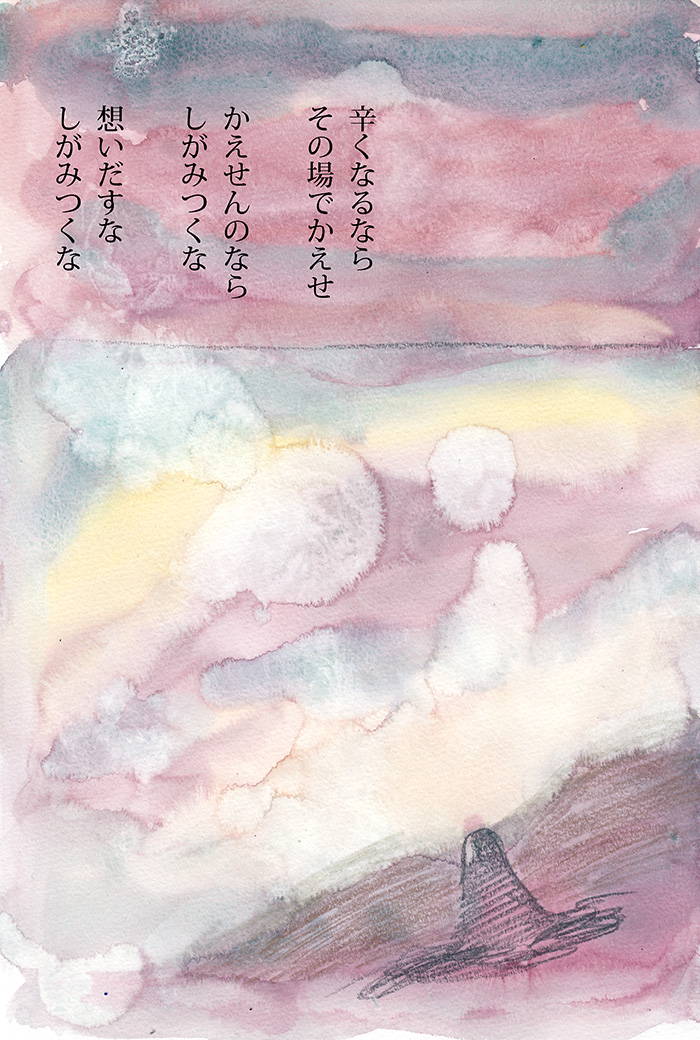 辛くなるなら
その場でかえせ
かえせんのなら
しがみつくな
想いだすな
しがみつくな